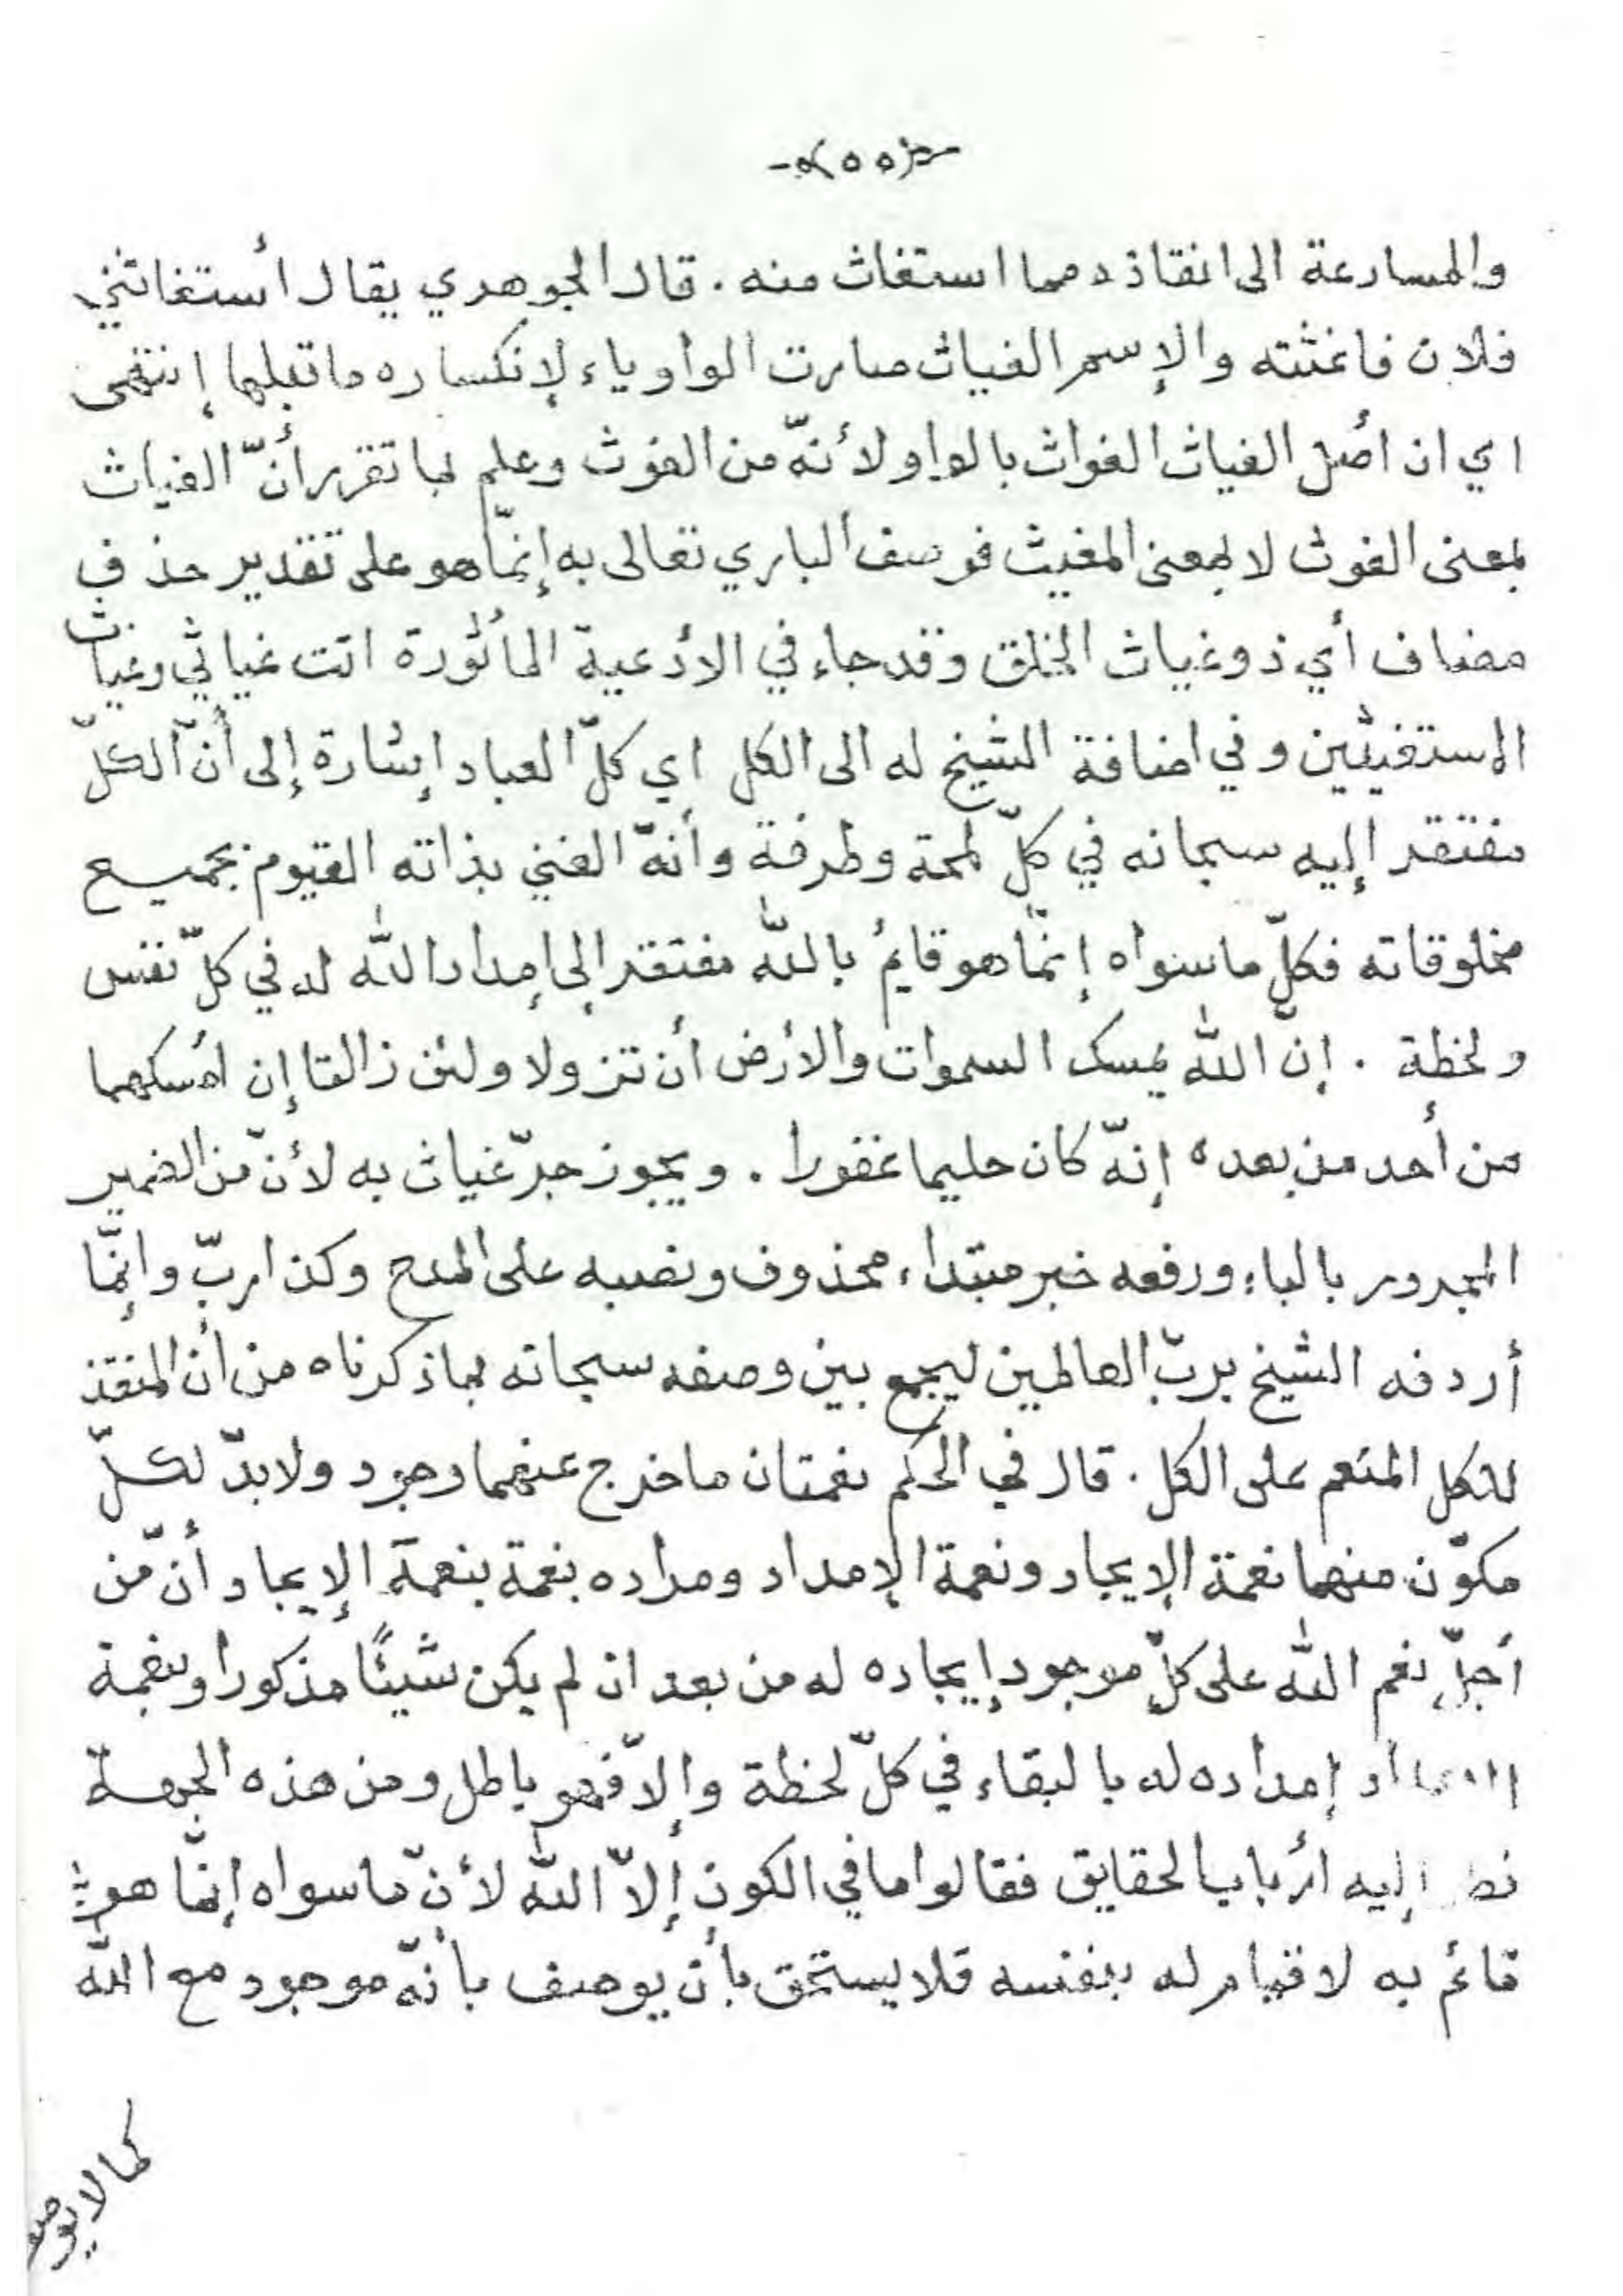 -٥٥-
والمسارعة الى انقاذه مما استغاث منه . قال الجوهري يقال أستغاثني
فلان فاغثته والإسم الغياث صارت الواو ياء لإنكساره ما قبلها إنتهى
اي ان أصل الغياث الغواث بالواو لأنّه من الغوث وعلم بما تقرر أنّ الغياث
بمعنى الغوث لا بمعنى المغيث فوصف الباري تعالى به إنمّا هو على تقدير حذف
مضاف أي ذو غياث الخلق وقد جاء في الأدعية المأثورة انت غياثي وغياث
المستغيثين وفي اضافة الشيخ له الى الكل اي كلّ العباد إشارة إلى أنّ الكلّ
مفتقر إليه سبحانه في كلّ لمحة وطرفة وأنّه الغني بذاته القيوم بجميع
مخلوقاته فكلّ ما سواه إنمّا هو قايمُ باللّه مفتقر إلى إمداد اللّه له في كلّ نفس
ولخظة . إنّ اللّه يمسك السموات والأرض أن تزولا ولئن زالتا إن امسكهما
من أحد من بعده إنّه كان حليما غفورا . ويجوز جرّ غياث به لأنّ من الضمير
المجرور بالباء ورفعه خبر مبتداء محذوف ونصبه على المدح وكذا ربّ وإنمّا
أردفه الشيخ بربّ العالمين ليجمع بين وصفه سبحانه بما ذكرناه من أن المنقذ
للكل المنعم على الكل . قال في الحكم نعمتان ما خرج عنهما وجود ولا بدّ لكلّ
مكوّن منهما نعمة الإيجاد ونعمة الإمداد ومراده بنعمة بنعمة الإيجاد أنّ من
أجلّ نعم اللّه على كلّ موجود إيجاده له من بعد ان لم يكن شيئًا مذكورا وبنعمة
إمداده له بالبقاء في كلّ لحظة وإلاّ فهو باطل ومن هذه الجهة
إليه أرباب الحقايق فقالوا ما في الكون إلاّ اللّه لأنّ ما سواه إنمّا هو
قائم به لا قيام له بنفسه فلا يستحق بأن يوصف بأنّه موجود مع اللّه
كما لا يوصف